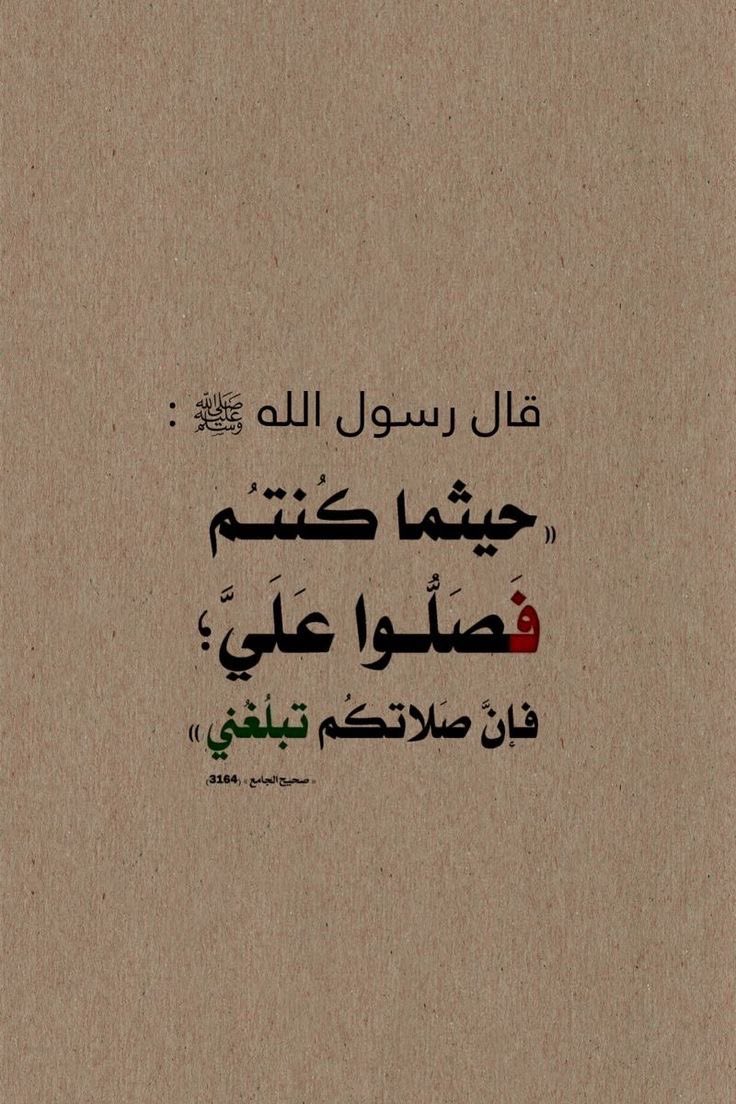 قال رسول الله ﷺ :
(( حيثما كُنتُم
فَصَلُّوا عَلَيَّ؛
فإنَّ صَلاتكُم تبلُغُني ))
« صحيح الجامع » (3164)